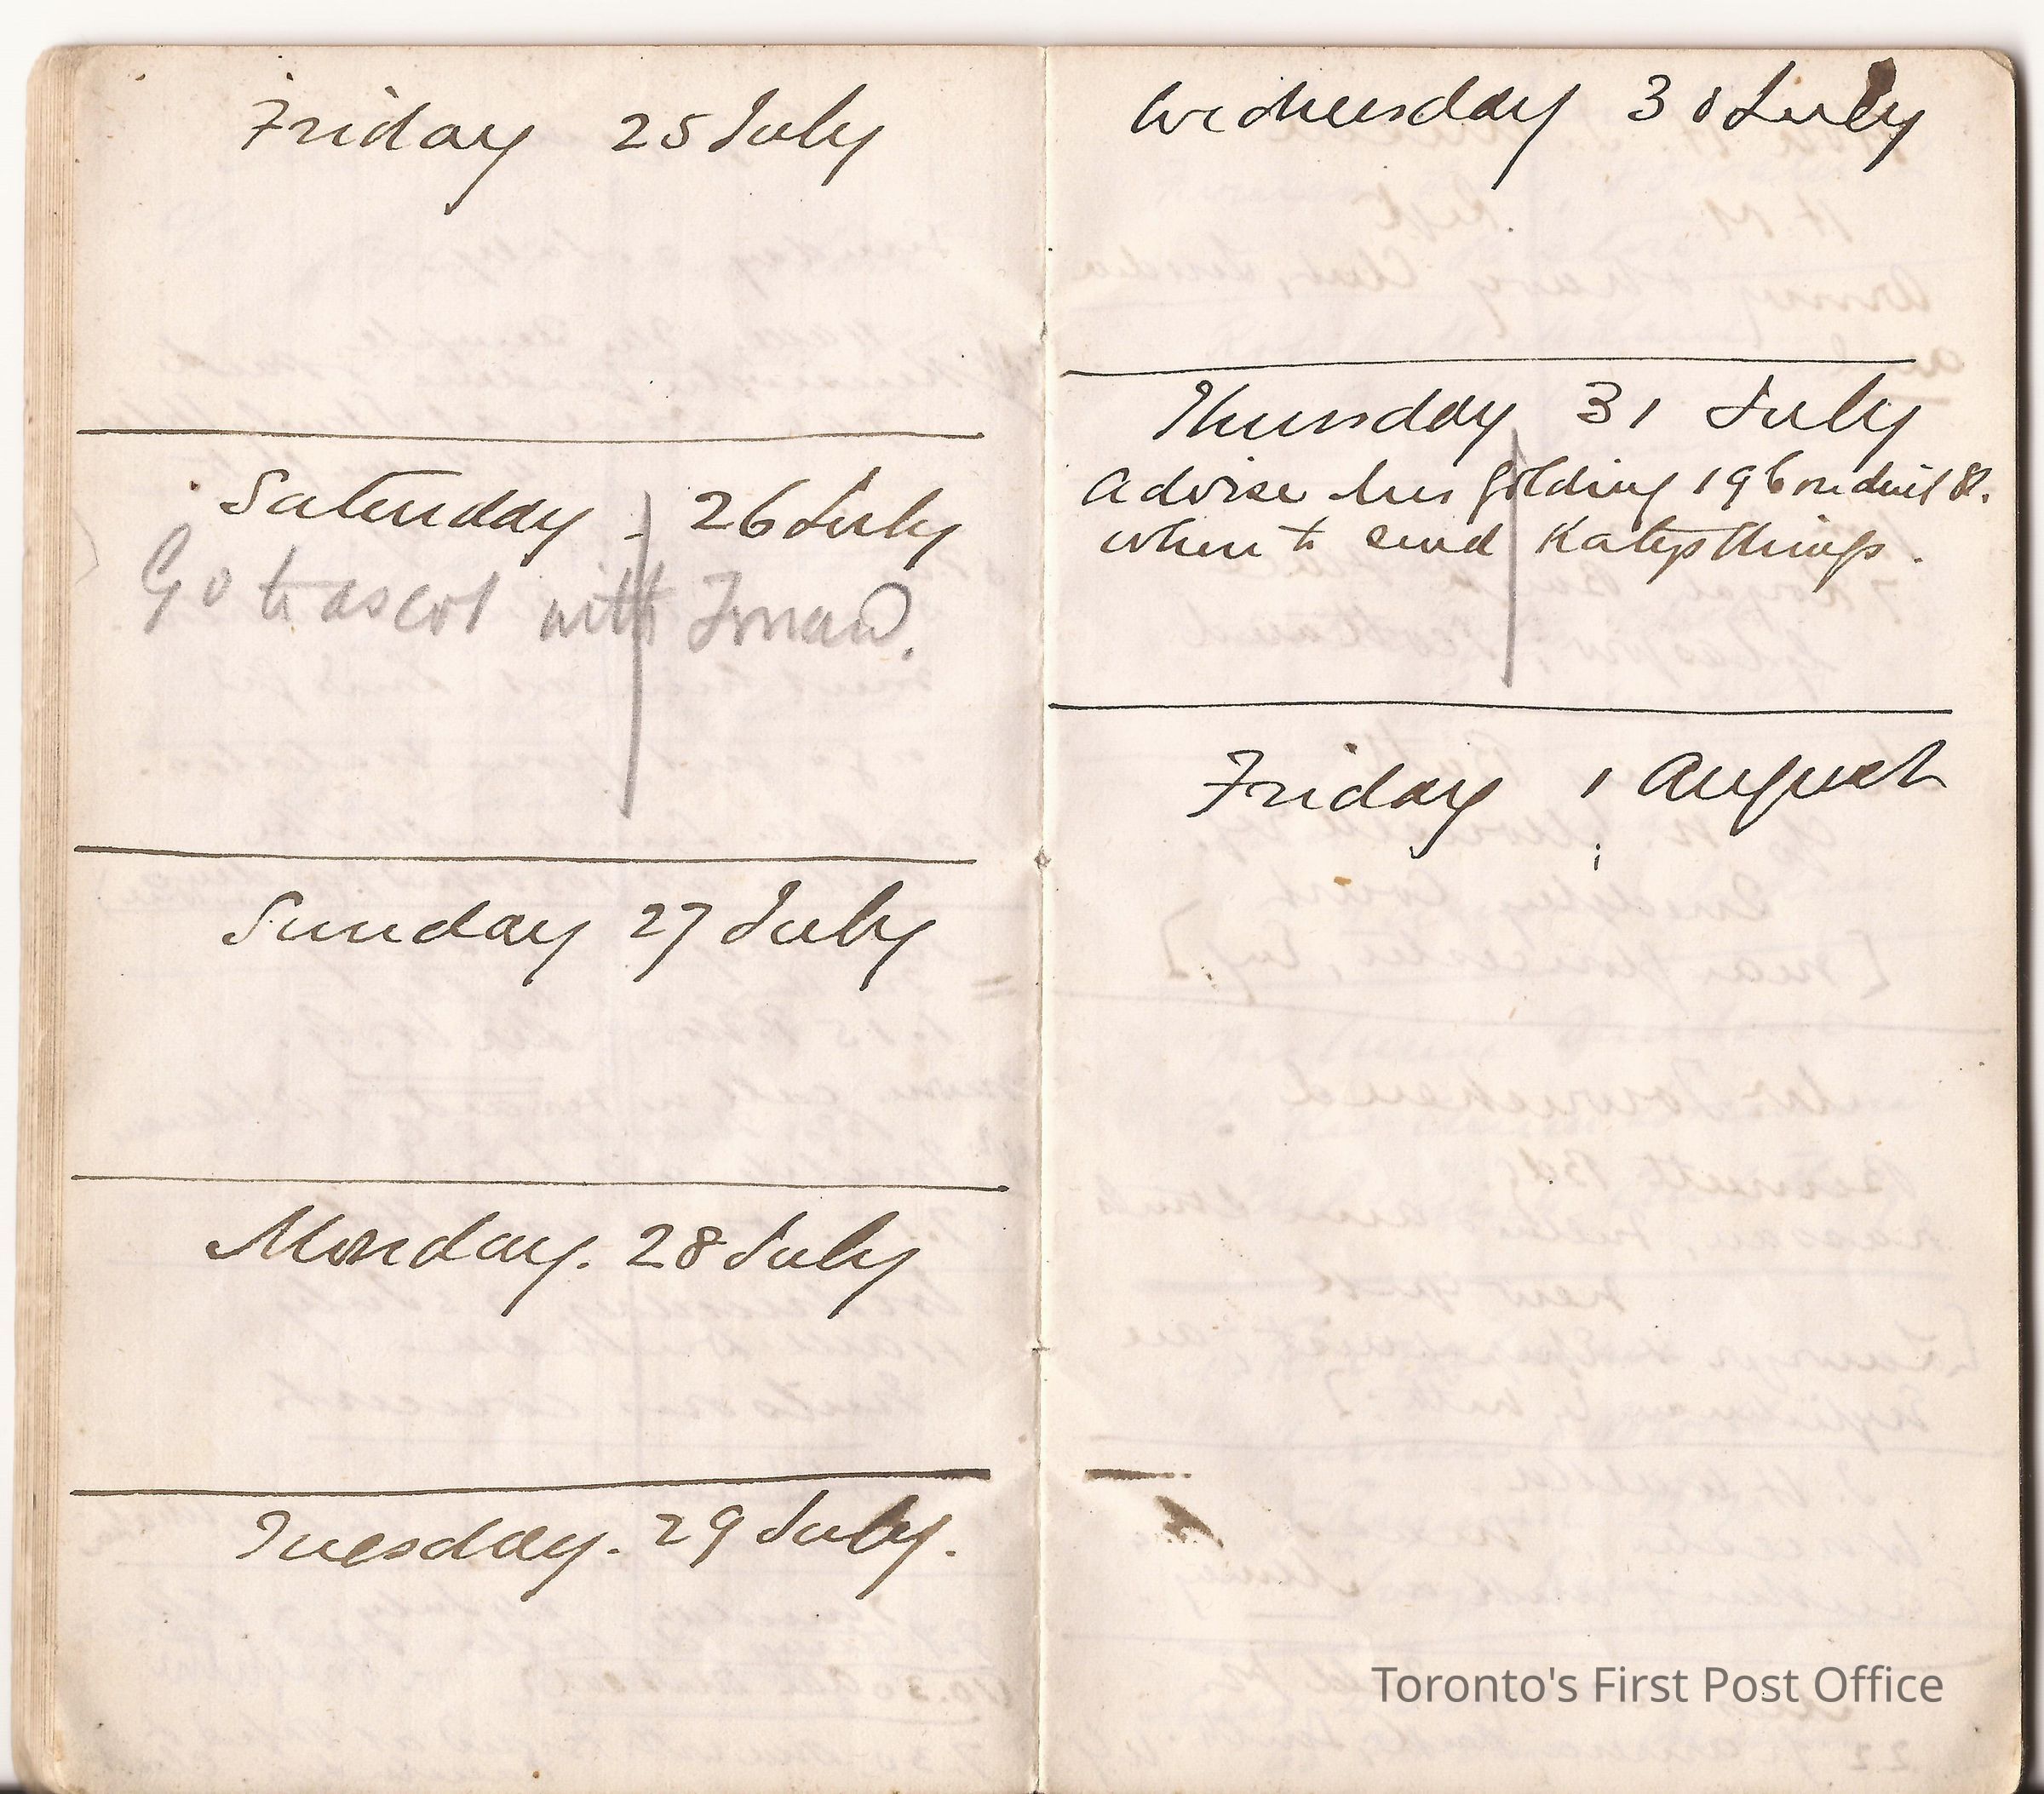 Friday 25 July
Saturday 26 July
Go to ascot with
Sunday 27 July
Monday. 28 July
Tuesday. 29 July.
Wednesday 30 July
Thursday 31 July
Advise Mrs Golding 196
when to send Katys things.
Friday 1 August
Toronto's First Post Office